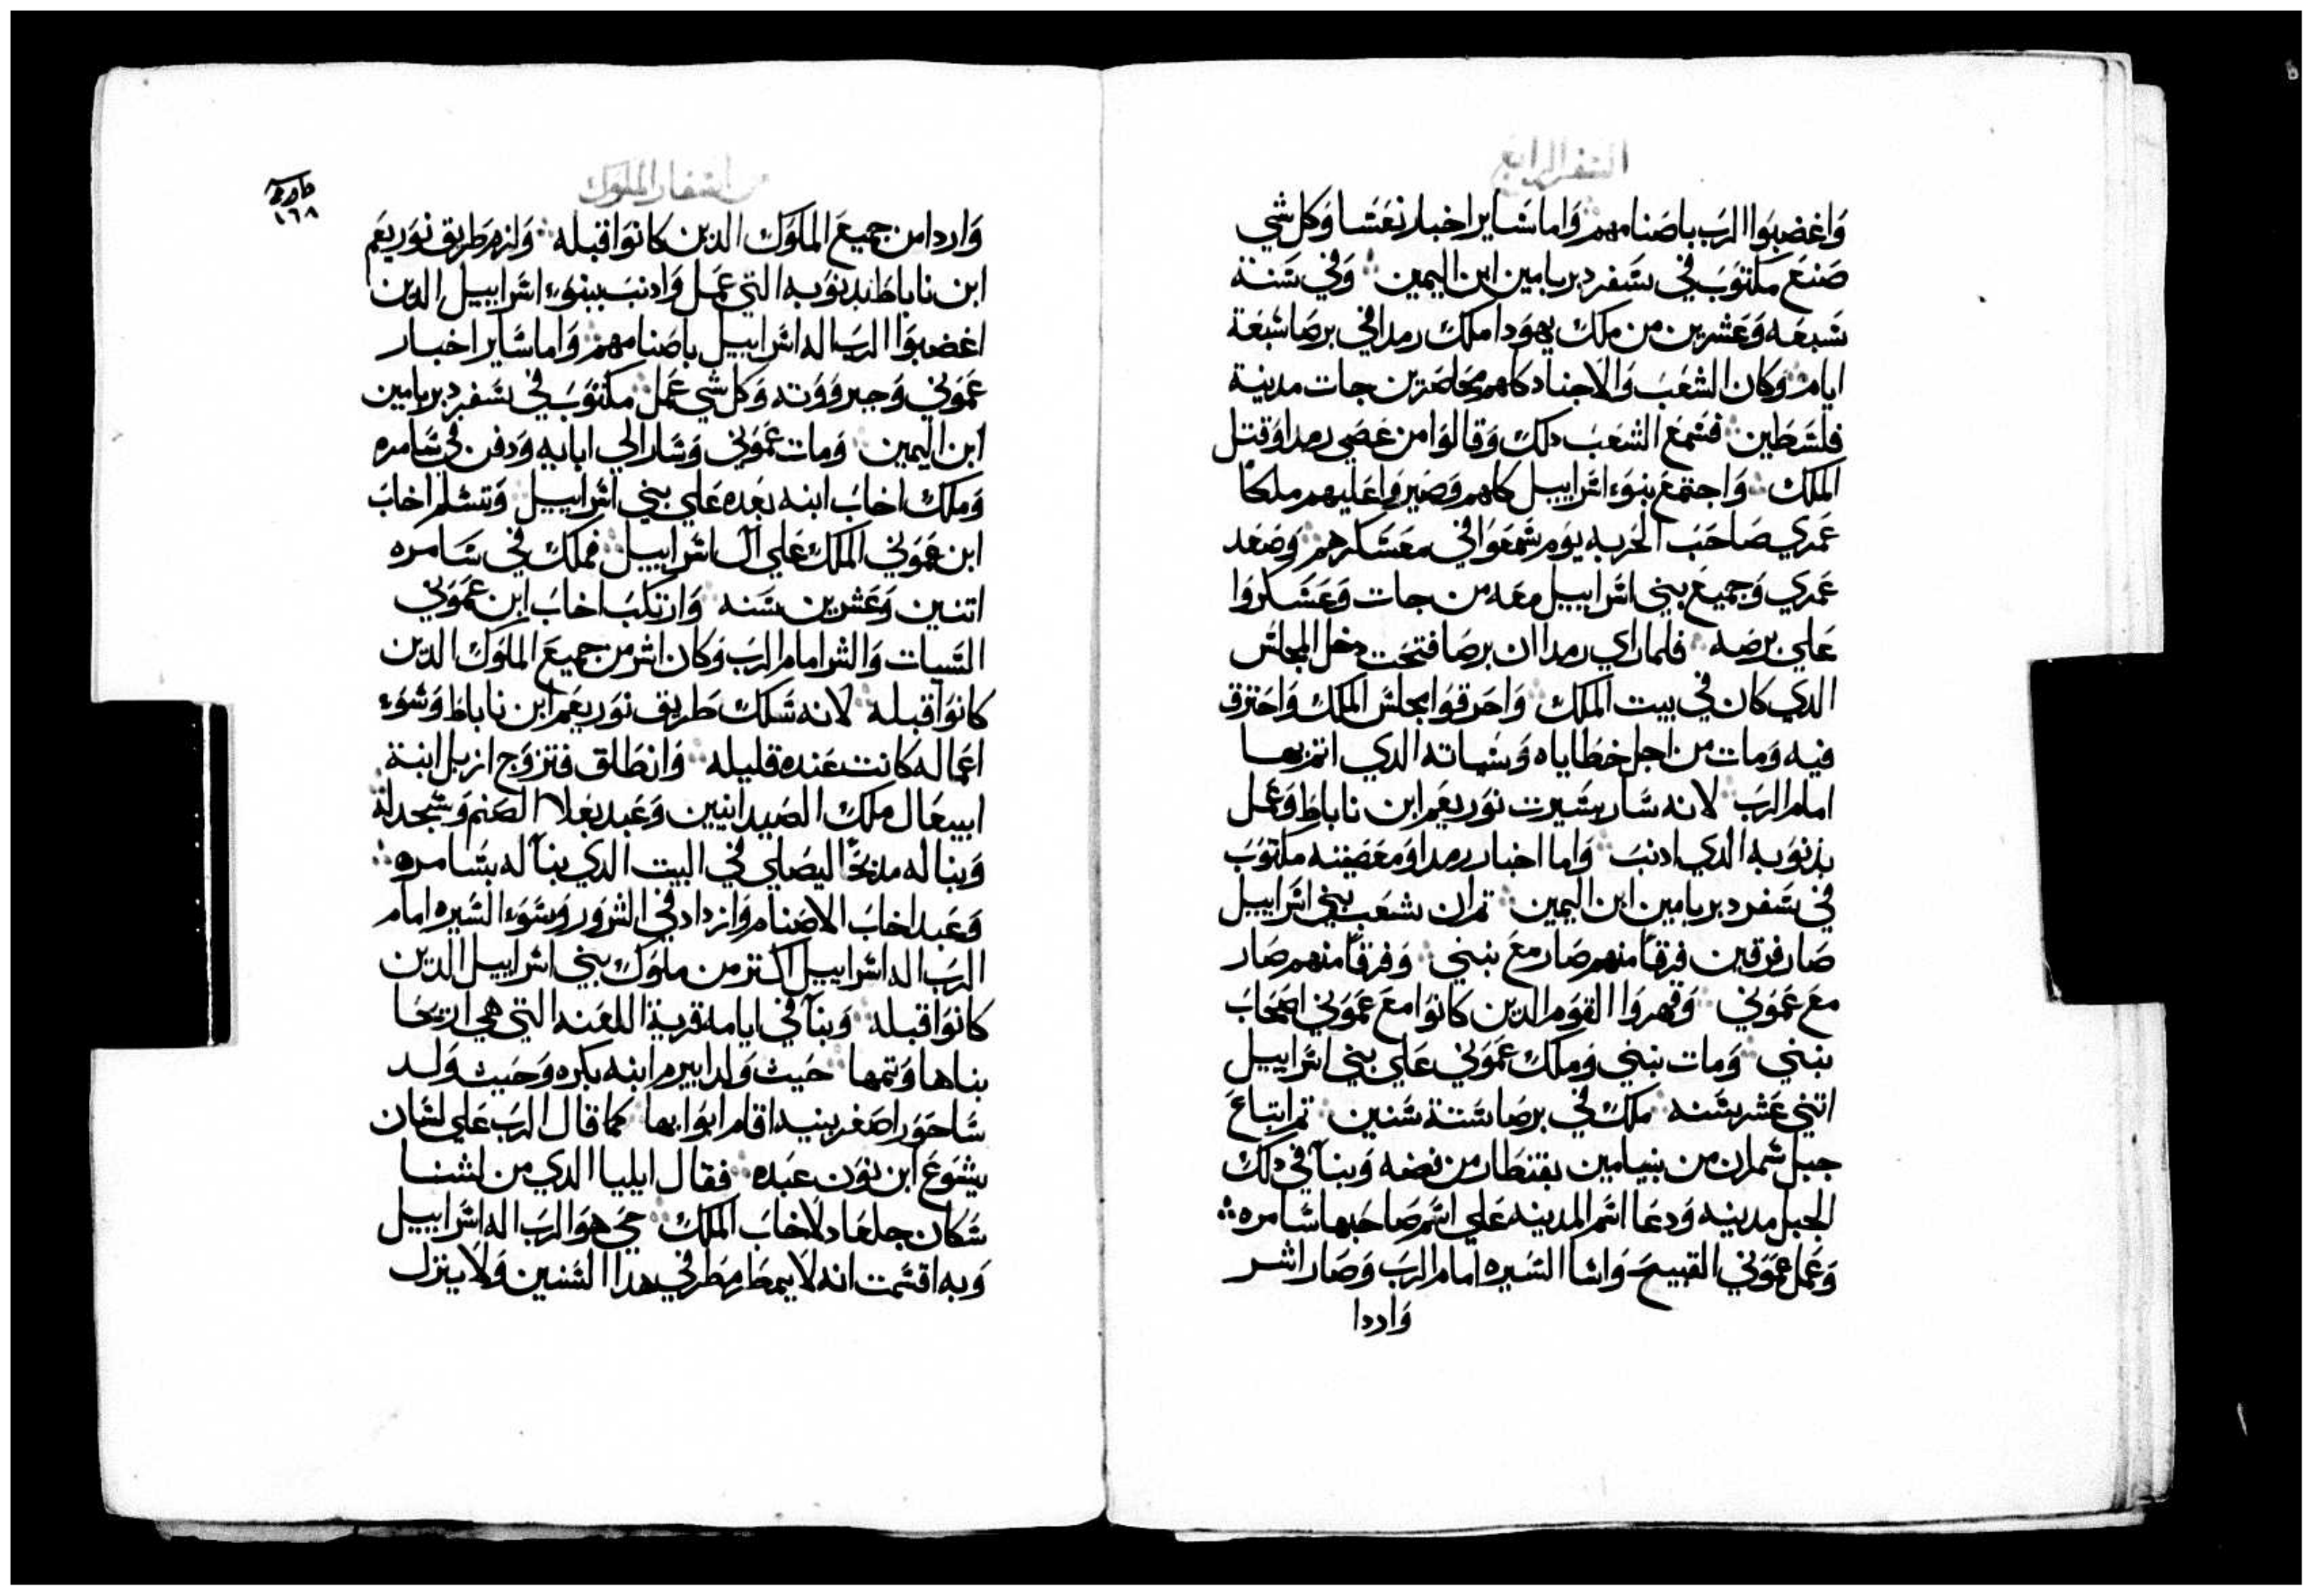 السفر الرابع
وَاغضبوَا الرَب باصَنامهم وَاما سَاير اخبار نعَسَا وَكل شي
صَنعَ مكتوَبَ في سَفر دبريامين ابن اليمين وَفي سَنة
سَبعَه وَعَشرين من ملك يهوَدا ملك رمدا في برصَا سَبعَة
ايام وَكان الشعَبَ وَالاجناد كلهم محَاصَرين جات مدينة
فلسَطين فسَمعَ الشعَبَ دلك وَقالوَا من عَصَي رمدا وَقتل
الملك وَاجتمعَ بنوَء اسَراييل كلهم وَصَيروَا عَليهم ملكاً
عَمري صَاحَبَ الحَربه يوَم سَمعَوَا في معَسَكرهم وَصَعَد
عَمري وَجميعَ بني اسَراييل معَه من جات وَعَسَكروَا
عَلي برصَه فلما راي رمدا ان برصَا فتحَت دخل المجلسَ
الدي كان في بيت الملك وَاحَرقوَا مجلسَ الملك وَاحَترق
فيه وَمات من اجل خطاياه وَسَياته الدي اتم بها
امام الرَب لانه سَار بسَيرت نوَربعَم ابن ناباط وَعَمل
بذنوَبه الدي ادنبَ وَاما اخبار رمدا وَمعَصَيته مكتوَبَ
في سَفر دبريامين ابن اليمين تم ان شعَب بني اسَراييل
صَار فرقين فرقاً منهم صَار معَ تبني وَفرقاً منهم صَار
معَ عَموَني وَقهروَا القوَم الدين كانوَا معَ عَموَني اصَحَابَ
تبني وَمات تبني وَملك عَموَني عَلي بني اسَراييل
اتني عَشر سَنه ملك في برصَا سَتة سَنين تم ابتاعَ
جبل شمران من بنيامين بقنطار من فضه وَبنآ في دلك
الجبل مدينه وَدعَا اسَم المدينه عَلي اسَم صَاحَبها سَامره
وَعَمل عَموَني القبيحَ وَاسَا السَيره امام الرَبَ وَصَار اشر
وَاردا
من اسفار الملوك
١٦٨
وَاردا من جميعَ الملوَك الدين كانوَا قبله وَلزم طريق نوَربعَم
ابن ناباط بدنوَبه التي عَمل وَادنبَ ببنوَء اسَراييل الدين
اغضبوَا الرَب اله اسَراييل باصَنامهم وَاما سَاير اخبار
عَموَني وَجبروَوَته وَكل شي عَمل مكتوَبَ في سَفر دبريامين
ابن اليمين وَمات عَموَني وَسَار الي ابايه وَدفن في سَامره
وَملك اخابَ ابنه بعَده عَلي بني اسَراييل وَتسَلم اخابَ
ابن عَموَني الملك عَلي ال اسَراييل فملك في سَامره
اتنين وَعَشرين سَنه وَارتكبَ اخابَ ابن عَموَني
السَيات وَالشر امام الرَبَ وَكان اشر من جميعَ الملوَك الدين
كانوَا قبله لانه سَلك طريق نوَربعَم ابن ناباط وَسَوَء
اعَماله كانت عَنده قليله وَانطلق فتزوَج ازبل ابنة
ابيبعَال ملك الصَيدانيين وَعَبد بعَلا الصَنم وَسَجد له
وَبنا له مدبحَاً ليصَلي في البيت الدي بنآ له بسَامره
وَعَبد اخابَ الاصَنام وَازداد في الشروَر وَسَوَء السَيره امام
الرَبَ اله اسَراييل اكتر من ملوَك بني اسَراييل الدين
كانوَا قبله وَبنآ في ايامه قرية اللعَنه التي هي اريحَا
بناها وَتمها حَيث وَلد ابيرم ابنه بكره وَحَيث وَلد
سَاحَوَر اصَغر بنيه اقام ابوَابها كما قال الرَب عَلي لسَان
يشوَعَ ابن نوَن عَبده فقال ايليا الدي من لسَنا
سَكان جلعَاد لاخابَ الملك حَي هوَ الرَبَ اله اسَراييل
وَبه اقسَمت انه لا يمطر مطر في هدا السَنين وَلا ينزل